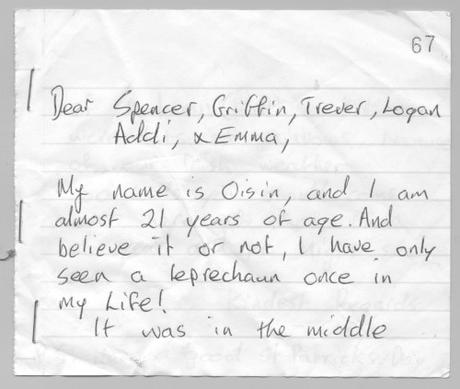 67
Dear Spencer, Griffin, Trever, Logan
Addi, & Emma,
My name is Oisin, and I am
almost 21 years of age. And
believe it or not, I have only
seen a leprechaun once in
my Life!
It was in the middle